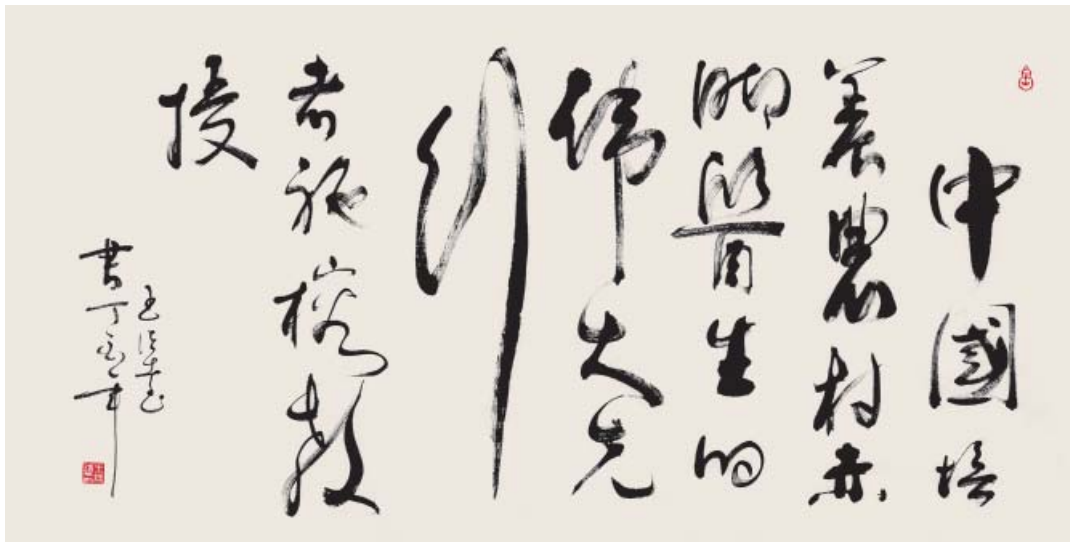 中國培
養農村赤
脚醫生的
偉大先
行
者施榕教
授
王
書丁酉年